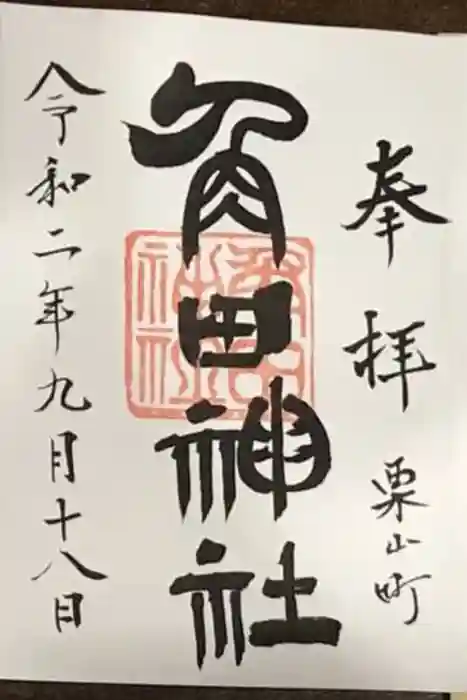 奉拝 栗山町
角田神社
令和二年九月十八日